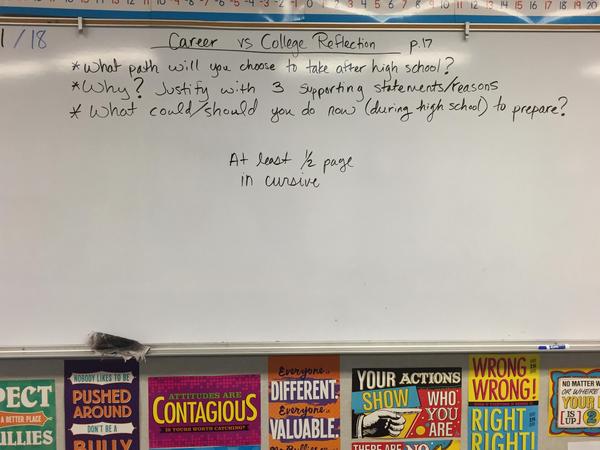 1/18
Career vs College Reflection p.17
* What path will you choose to take after high school?
* Why? Justify with 3 supporting statements/reasons
* What could/should you do now (during high school) to prepare?
At least 1/2 page
in cursive
PECT
A BETTER PLACE
ULLIES
NOBODY LIKES TO BE
PUSHED
AROUND
DON'T BE A
BULLY
ATTITUDES ARE
CONTAGIOUS
IS YOURS WORTH CATCHING?
Everyone is
DIFFERENT.
Everyone is
VALUABLE.
YOUR ACTIONS
SHOW WHO
YOU
ARE
THERE ARE NO
WRONG IS
WRONG!
RIGHT IS
RIGHT!
NO MATTER W
OR WHERE
YOUR
IS UP 2